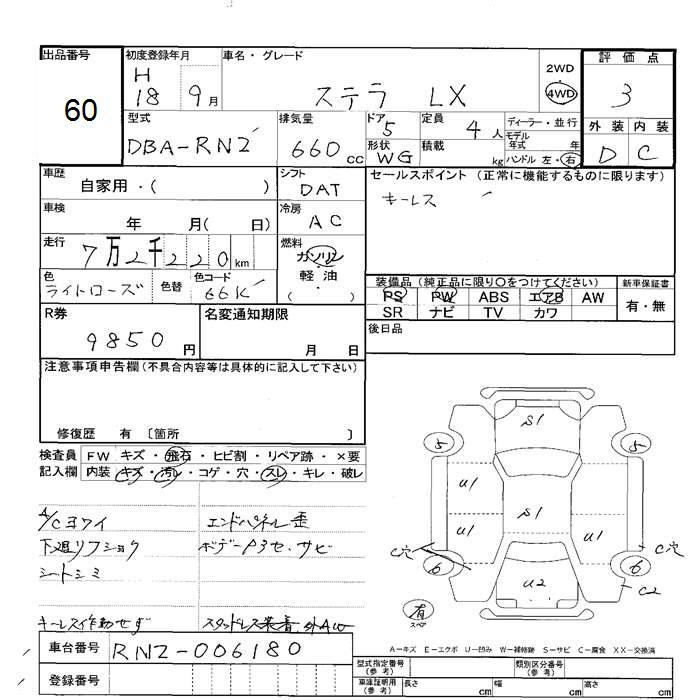 出品番号
60
初度登録年月
H 18 9月
車名・グレード
ステラ LX
2WD
4WD
評価点
3
外装 内装
D C
型式
DBA-RN2
排気量
660cc
ドア
5
形状
WG
定員
4人
積載
kg
ディーラー・並行
モデル年式 年
ハンドル 左・右
車歴
自家用・( )
シフト
DAT
セールスポイント (正常に機能するものに限ります)
キーレス
車検
年 月( 日)
冷房
AC
走行
7万2千220km
燃料
ガソリン
軽油
( )
色
ライトローズ
色替
色コード
66K
装備品 (純正品に限り○をつけてください)
PS PW ABS エアB AW
SR ナビ TV カワ
新車保証書
有・無
後日品
R券
9850円
名変通知期限
月 日
注意事項申告欄(不具合内容等は具体的に記入して下さい)
修復歴 有 〔箇所 〕
検査員記入欄
FW キズ・飛石・ヒビ割・リペア跡・×要
内装 キズ・汚レ・コゲ・穴・スレ・キレ・破レ
A/Cヨワイ
エンドパネル歪
下廻リフショク
ボデーP3セ、サビ
シートシミ
キーレス作動せず
スタッドレス装着、外AW
S1
5 5
U1
S1
U1 U1
C穴 C穴
6 6
U2
C2
有
スペア
A−キズ E−エクボ U−凹み W−補修跡 S−サビ C−腐食 XX−交換済
車台番号
RN2-006180
登録番号
型式指定番号(参考)
類別区分番号(参考)
車庫証明用(参考)
長さ cm
幅 cm
高さ cm